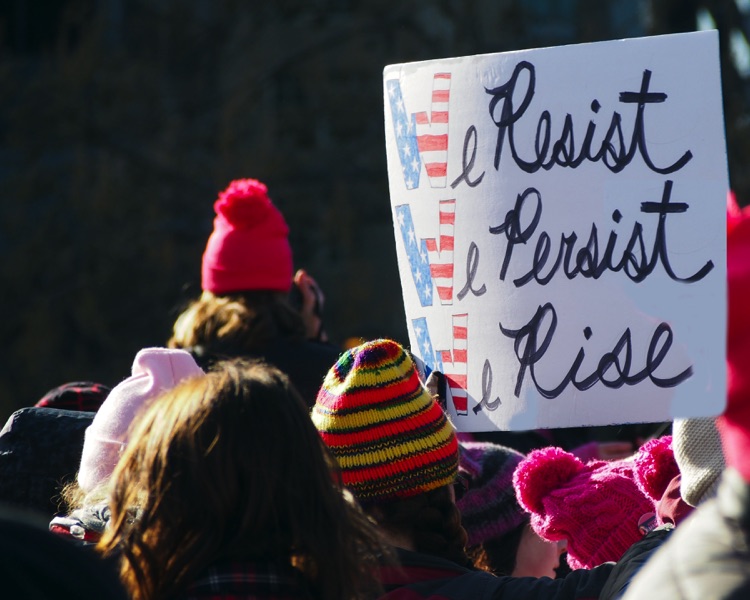 We Resist
We Persist
We Rise